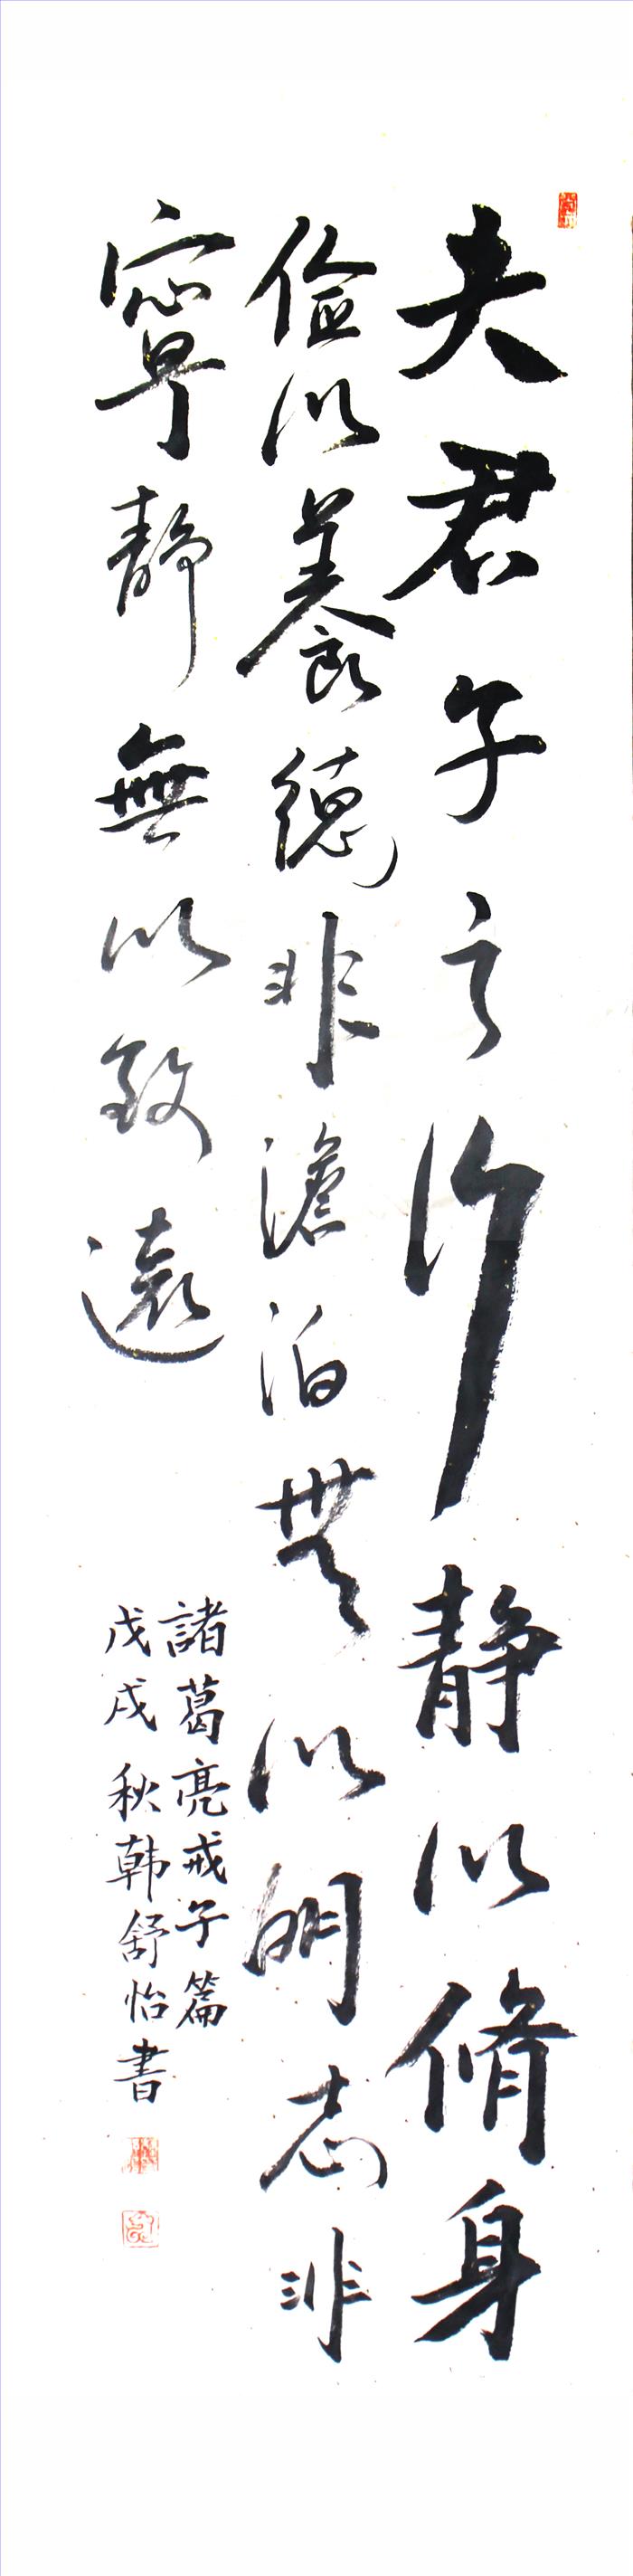 夫君子之行静以脩身
儉以養德非澹泊無以明志非
寧静無以致遠
諸葛亮戒子篇
戊戌秋韩舒怡書